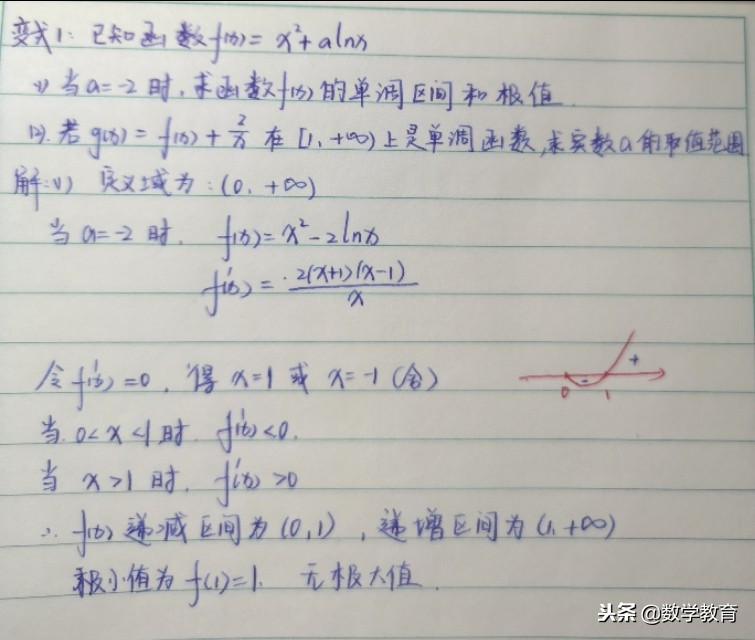 变式1: 已知函数f(x)= x²+alnx
(1) 当a=-2时,求函数f(x)的单调区间和极值
(2). 若g(x)= f(x)+2/x 在[1,+∞)上是单调函数,求实数a的取值范围
解:(1) 定义域为:(0,+∞)
当a=-2时. f(x)=x²-2lnx
f'(x)= 2(x+1)(x-1)/x
令f'(x)=0, 得x=1或x=-1(舍)
+
-
0 1
当0<x<1时. f'(x)<0.
当 x>1 时. f'(x)>0
∴ f(x)递减区间为(0,1), 递增区间为(1,+∞)
极小值为f(1)=1. 无极大值.
头条 @数学教育